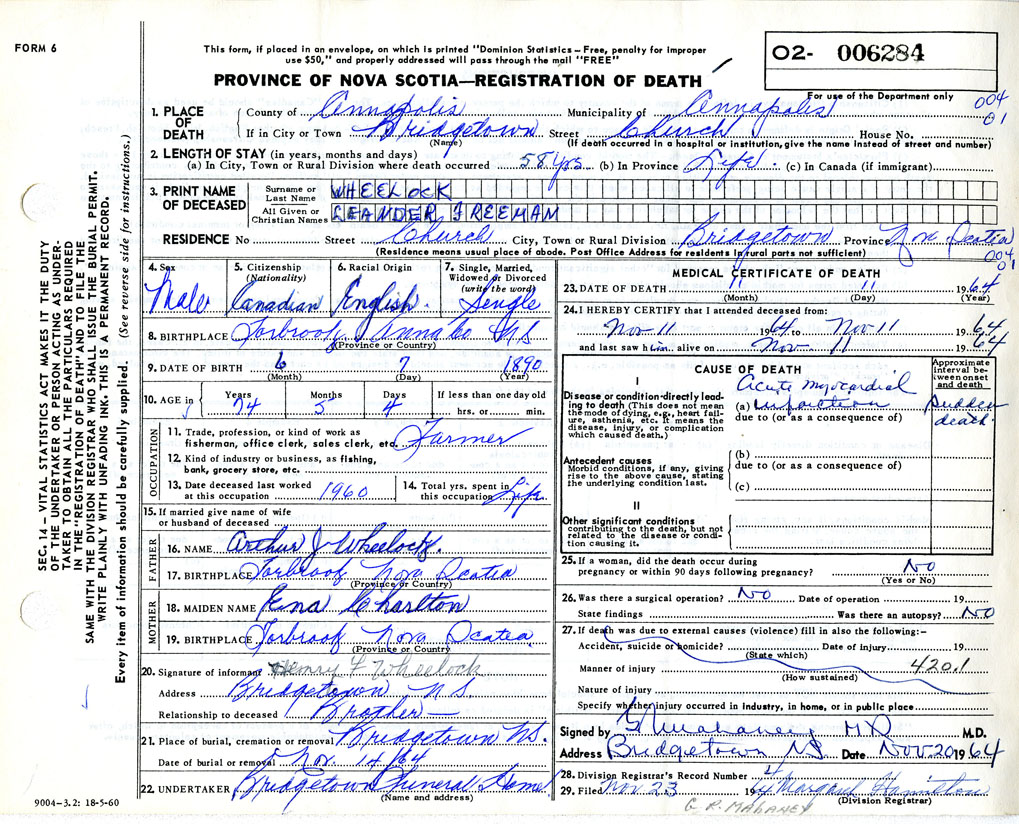 FORM 6
This form, if placed in an envelope, on which is printed "Dominion Statistics—Free, penalty for improper
use $50," and properly addressed will pass through the mail "FREE"
PROVINCE OF NOVA SCOTIA—REGISTRATION OF DEATH
02- 006284
For use of the Department only
004
01
SEC. 14 – VITAL STATISTICS ACT MAKES IT THE DUTY
OF THE UNDERTAKER OR PERSON ACTING AS UNDER-
TAKER TO OBTAIN ALL THE PARTICULARS REQUIRED
IN THE "REGISTRATION OF DEATH" AND TO FILE THE
SAME WITH THE DIVISION REGISTRAR WHO SHALL ISSUE THE BURIAL PERMIT.
WRITE PLAINLY WITH UNFADING INK. THIS IS A PERMANENT RECORD.
Every item of information should be carefully supplied. (See reverse side for instructions.)
1. PLACE OF DEATH
County of Annapolis Municipality of Annapolis
If in City or Town Bridgetown Street Church House No.
(Name) (If death occurred in a hospital or institution, give the name instead of street and number)
2. LENGTH OF STAY (in years, months and days)
(a) In City, Town or Rural Division where death occurred 58 yrs (b) In Province Life (c) In Canada (if immigrant)
3. PRINT NAME OF DECEASED
Surname or Last Name WHEELOCK
All Given or Christian Names LEANDER FREEMAN
RESIDENCE No Street Church City, Town or Rural Division Bridgetown Province Nova Scotia
(Residence means usual place of abode. Post Office Address for residents in rural parts not sufficient)
004
01
4. Sex Male
5. Citizenship (Nationality) Canadian
6. Racial Origin English.
7. Single, Married, Widowed or Divorced (write the word) Single
8. BIRTHPLACE Torbrook Anna Co NS
(Province or Country)
9. DATE OF BIRTH 6 7 1890
(Month) (Day) (Year)
10. AGE in Years 74 Months 5 Days 4 If less than one day old
hrs. or min.
OCCUPATION
11. Trade, profession, or kind of work as
fisherman, office clerk, sales clerk, etc. Farmer
12. Kind of industry or business, as fishing,
bank, grocery store, etc.
13. Date deceased last worked at this occupation 1960
14. Total yrs. spent in this occupation Life
15. If married give name of wife
or husband of deceased
FATHER
16. NAME Arthur J Wheelock.
17. BIRTHPLACE Torbrook Nova Scotia
(Province or Country)
MOTHER
18. MAIDEN NAME Ena Charlton
19. BIRTHPLACE Torbrook Nova Scotia
(Province or Country)
20. Signature of informant Henry F Wheelock
Address Bridgetown NS
Relationship to deceased Brother
21. Place of burial, cremation or removal Bridgetown NS.
Date of burial or removal Nov. 14/64
22. UNDERTAKER Bridgetown Funeral Home
(Name and address)
9004–3.2: 18-5-60
MEDICAL CERTIFICATE OF DEATH
23. DATE OF DEATH 11 11 1964
(Month) (Day) (Year)
24. I HEREBY CERTIFY that I attended deceased from:
Nov 11 1964 to Nov 11 1964
and last saw him alive on Nov. 11 1964
CAUSE OF DEATH
Approximate interval between onset and death
I
Disease or condition directly lead-
ing to death (This does not mean
the mode of dying, e.g., heart fail-
ure, asthenia, etc. It means the
disease, injury, or complication
which caused death.)
(a) Acute myocardial infarction
due to (or as a consequence of)
sudden death.
Antecedent causes
Morbid conditions, if any, giving
rise to the above cause, stating
the underlying condition last.
(b)
due to (or as a consequence of)
(c)
II
Other significant conditions
contributing to the death, but not
related to the disease or condi-
tion causing it.
25. If a woman, did the death occur during
pregnancy or within 90 days following pregnancy? No
(Yes or No)
26. Was there a surgical operation? No Date of operation 19
State findings Was there an autopsy? No
27. If death was due to external causes (violence) fill in also the following:–
Accident, suicide or homicide? Date of injury 19
(State which)
Manner of injury 420.1
(How sustained)
Nature of injury
Specify whether injury occurred in industry, in home, or in public place
Signed by G Mahaney MD M.D.
Address Bridgetown NS Date Nov. 20 1964
28. Division Registrar's Record Number 4
29. Filed Nov 23 1964 Margaret Hamilton
(Division Registrar)
G. R. MAHANEY